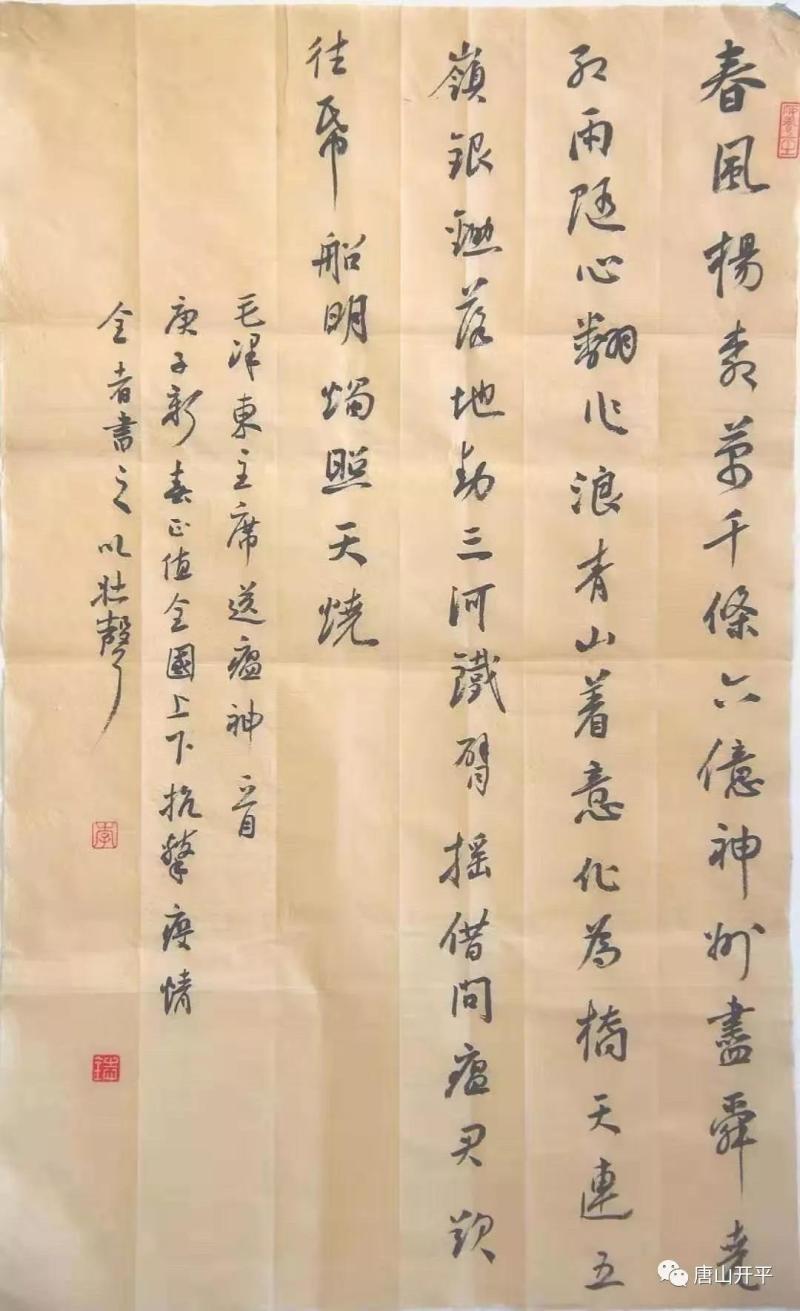 春風楊柳萬千條六億神州盡舜堯
紅雨隨心翻作浪青山着意化為橋天連五
嶺銀鋤落地動三河鐵臂搖借問瘟君欲
往紙船明燭照天燒
毛澤東主席送瘟神二首
庚子新春正值全國上下抗擊疫情
全者書之以壯聲
李
唐山开平